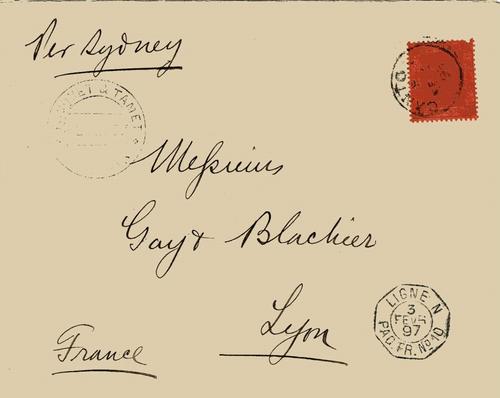 Per Sydney
& TAMET
Messieurs
Gay & Blachier
Lyon
France
LIGNE N
3
FEVR
97
PAQ. FR. Nº 10